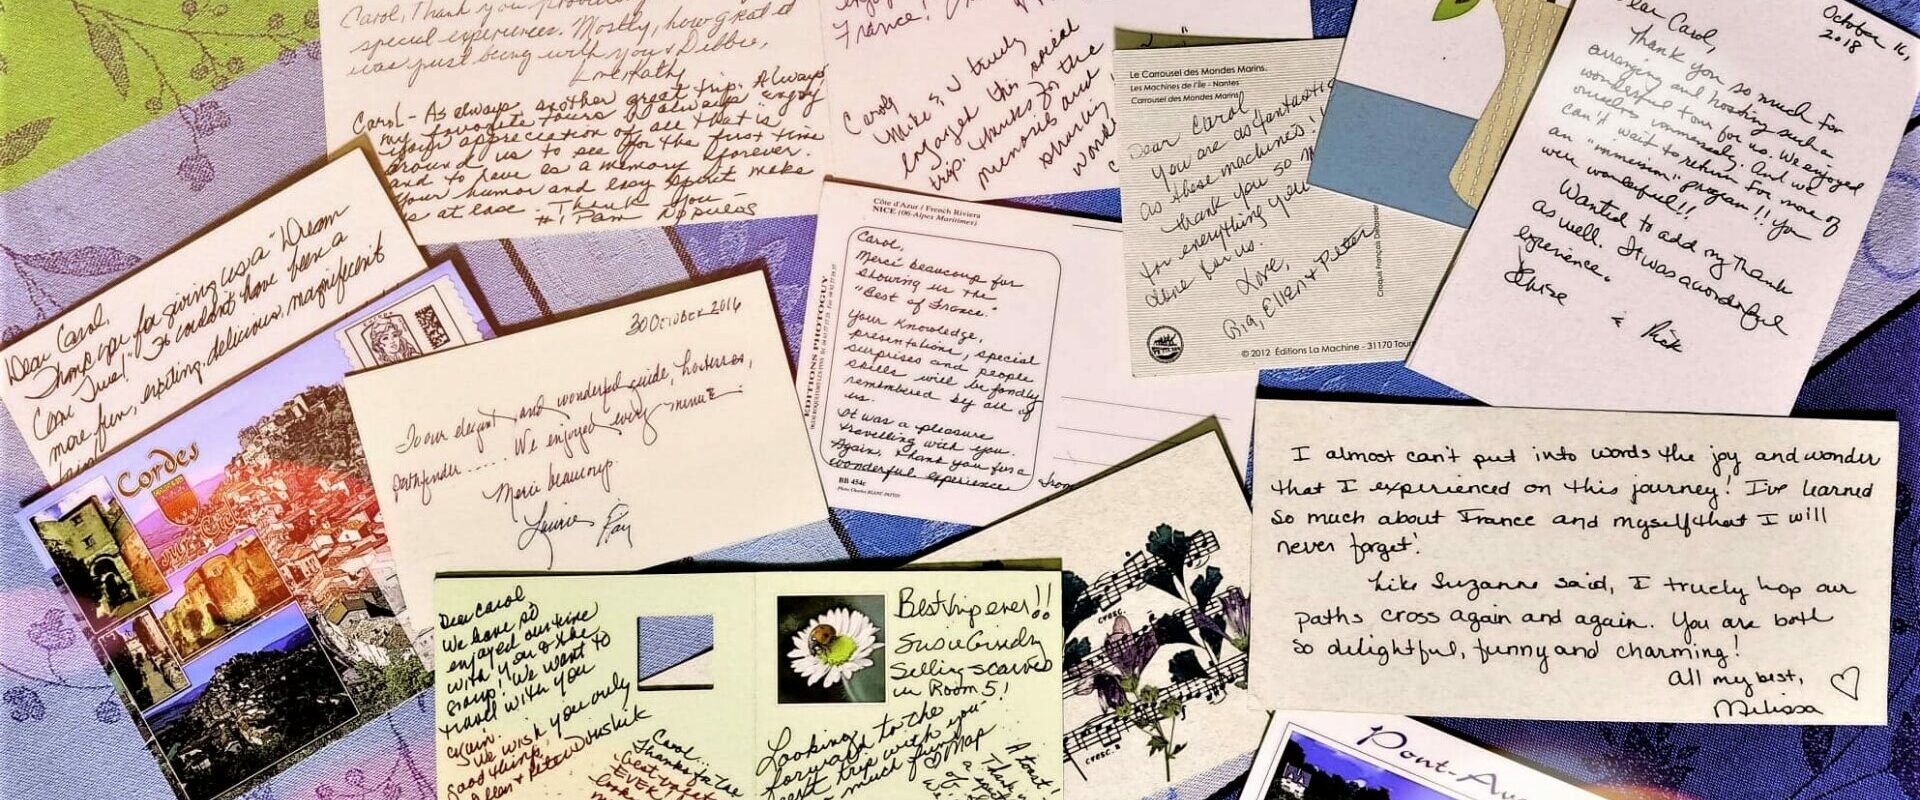 Carol, Thank you
special experiences. Mostly, how great it
was just being with you & Debbie,
Love Kathy
Carol - As always another great trip. Always
my favorite tours & always enjoy
your appreciation of all that is
around us to see for the first time
and to have as a memory forever.
Your humor and easy spirit make
us at ease. Thank you
#1 Pam
France!
Carol,
Mike & I truly
enjoyed this social
trip. Thanks for the
memories and
sharing
Le Carrousel des Mondes Marins.
Les Machines de l'île - Nantes
Carrousel des Mondes Marins
Dear Carol
You are as fantastic
as these machines!!
Thank you so m
for everything you
done for us.
Love,
Ria, Ellen & Peter
© 2012 Éditions La Machine - 31170 Tour
October 16,
2018
Dear Carol,
Thank you so much for
arranging and hosting such a
wonderful tour for us. We enjoyed
ourselves immensely. And we
can't wait to return for more of
an "immersion" program!! You
were wonderful!!
Wanted to add my thanks
as well. It was a wonderful
experience.
& Rick
Dear Carol,
Thank you for giving us a "Dream
Come True!" It couldn't have been a
more fun, exciting, delicious, magnificent
Cordes
sur Ciel
30 October 2016
To our elegant and wonderful guide, hostess,
pathfinder ..... We enjoyed every minute
Merci beaucoup.
Côte d'Azur / French Riviera
NICE (06-Alpes Maritimes)
EDITIONS PHOTOGUY
Carol,
Merci beaucoup for
showing us the
"Best of France."
Your knowledge,
presentations, special
surprises and people
skills will be fondly
remembered by all of
us.
It was a pleasure
travelling with you.
Again, thank you for a
wonderful experience
BB 454c
I almost can't put into words the joy and wonder
that I experienced on this journey! I've learned
so much about France and myself that I will
never forget!
Like Suzanne said, I truely hop our
paths cross again and again. You are both
so delightful, funny and charming!
All my best,
Melissa
Dear Carol
We have so
enjoyed our time
with you & the
group! We want to
travel with you
again.
We wish you only
good things,
Ellen & Peter
Best trip ever!!
Susie
Selling scarves
in Room 5!
Looking
forward to the
next trip with you
much fun
Carol..
Thanks for the
EVER
A toast!
Thank
cresc.
cresc.
Pont-Av